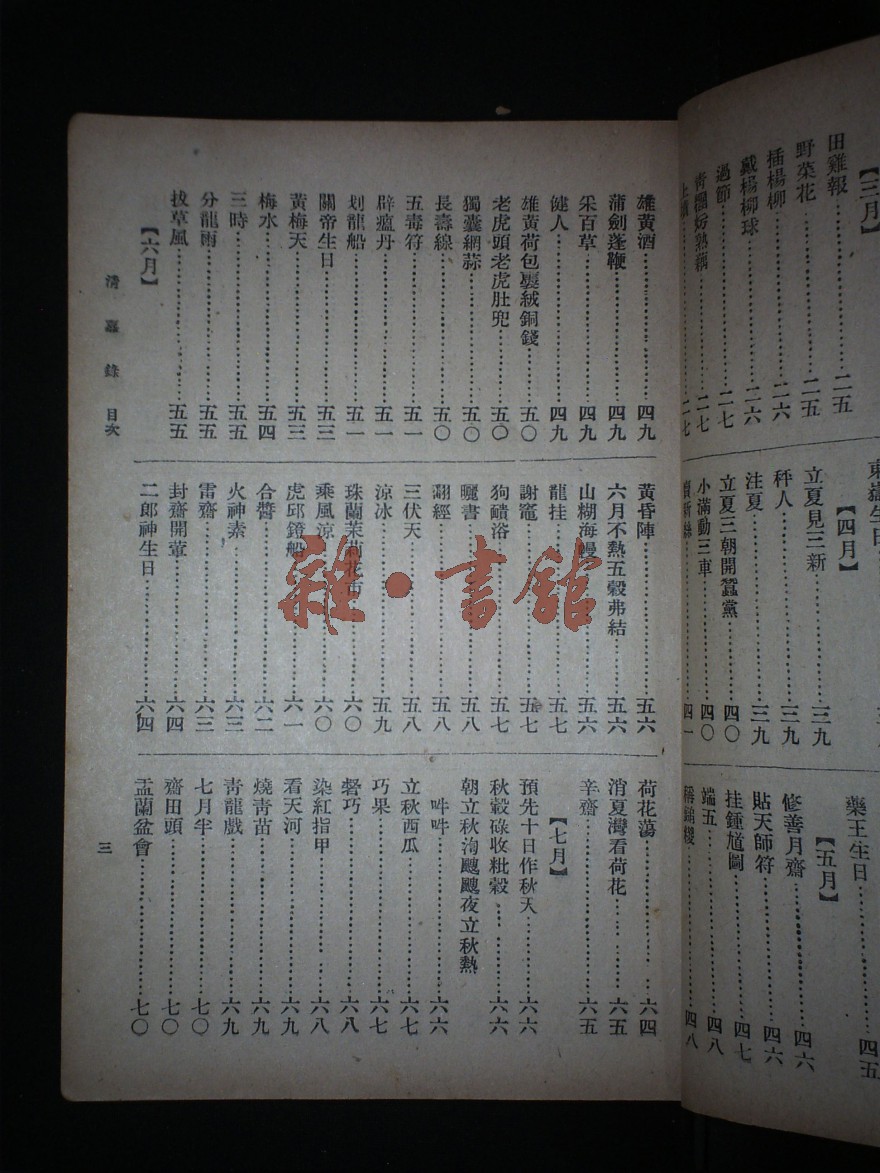 【三月】
田雞報⋯⋯二五
野菜花⋯⋯二五
插楊柳⋯⋯二六
戴楊柳球⋯⋯二六
過節⋯⋯二七
青團焐熟藕⋯⋯二七
二七
東嶽生日
【四月】
立夏見三新⋯⋯三九
秤人⋯⋯三九
注夏⋯⋯三九
立夏三朝開蠶黨⋯⋯四〇
小滿動三車⋯⋯四〇
賣新絲⋯⋯四一
藥王生日⋯⋯四五
【五月】
修善月齋⋯⋯四六
貼天師符⋯⋯四六
挂鍾馗圖⋯⋯四七
端五⋯⋯四八
四八
雄黃酒⋯⋯四九
蒲劍蓬鞭⋯⋯四九
采百草⋯⋯四九
健人⋯⋯四九
雄黃荷包裹絨銅錢⋯⋯五〇
老虎頭老虎肚兜⋯⋯五〇
獨囊網蒜⋯⋯五〇
長壽線⋯⋯五〇
五毒符⋯⋯五一
辟瘟丹⋯⋯五一
划龍船⋯⋯五一
關帝生日⋯⋯五三
黃梅天⋯⋯五三
梅水⋯⋯五四
三時⋯⋯五五
分龍雨⋯⋯五五
拔草風⋯⋯五五
【六月】
黃昏陣⋯⋯五六
六月不熱五穀弗結⋯⋯五六
山糊海幔⋯⋯五六
龍挂⋯⋯五七
謝竈⋯⋯五七
狗䫙浴⋯⋯五七
曬書⋯⋯五八
翻經⋯⋯五八
三伏天⋯⋯五八
涼冰⋯⋯五九
珠蘭茉莉花市⋯⋯六〇
乘風涼⋯⋯六〇
虎邱鐙船⋯⋯六一
合醬⋯⋯六二
火神素⋯⋯六三
雷齋⋯⋯六三
封齋開葷⋯⋯六四
二郎神生日⋯⋯六四
荷花蕩⋯⋯六四
消夏灣看荷花⋯⋯六五
辛齋⋯⋯六五
【七月】
預先十日作秋天⋯⋯六六
秋穀碌收粃穀⋯⋯六六
朝立秋渹颼颼夜立秋熱
吽吽⋯⋯六六
立秋西瓜⋯⋯六七
巧果⋯⋯六七
磬巧⋯⋯六八
染紅指甲⋯⋯六八
看天河⋯⋯六九
燒青苗⋯⋯六九
青龍戲⋯⋯六九
七月半⋯⋯七〇
齋田頭⋯⋯七〇
盂蘭盆會⋯⋯七〇
清嘉錄 目次
三
雜·書館